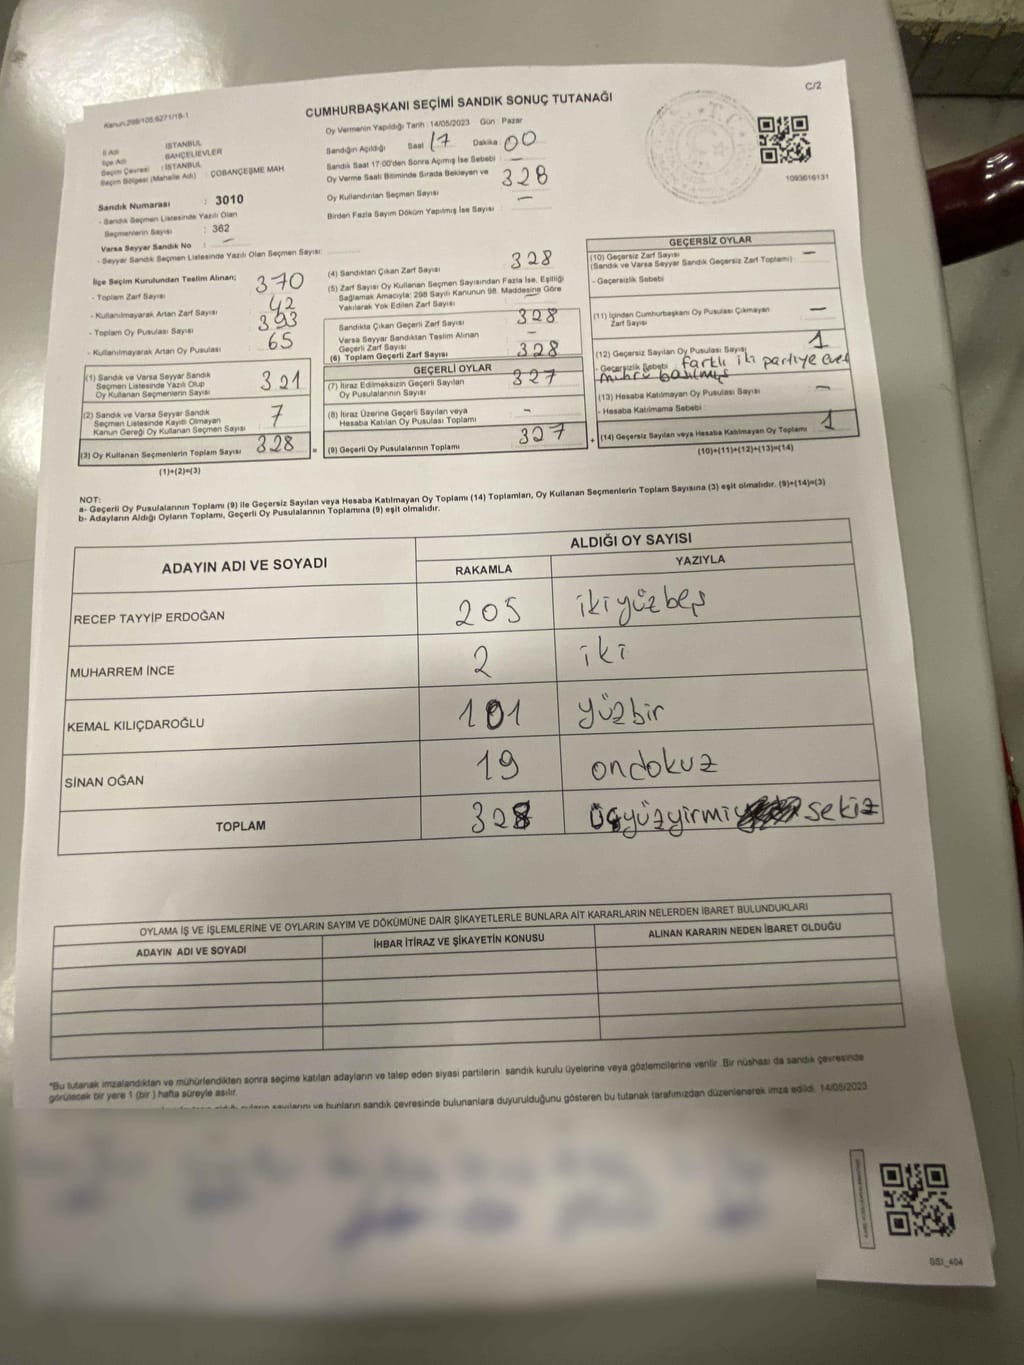 C/2
Kanun:298/105:6271/18-1
CUMHURBAŞKANI SEÇİMİ SANDIK SONUÇ TUTANAĞI
İl Adı : İSTANBUL
İlçe Adı : BAHÇELİEVLER
Seçim Çevresi : İSTANBUL
Seçim Bölgesi (Mahalle Adı) : ÇOBANÇEŞME MAH
Sandık Numarası : 3010
- Sandık Seçmen Listesinde Yazılı Olan
Seçmenlerin Sayısı : 362
Varsa Seyyar Sandık No : -
- Seyyar Sandık Seçmen Listesinde Yazılı Olan Seçmen Sayısı:
Oy Vermenin Yapıldığı Tarih : 14/05/2023 Gün : Pazar
Sandığın Açıldığı Saat 17 Dakika : 00
Sandık Saat 17:00'den Sonra Açılmış İse Sebebi : -
Oy Verme Saati Bitiminde Sırada Bekleyen ve
Oy Kullandırılan Seçmen Sayısı 328
Birden Fazla Sayım Döküm Yapılmış İse Sayısı : -
1093616131
İlçe Seçim Kurulundan Teslim Alınan;
- Toplam Zarf Sayısı 370
- Kullanılmayarak Artan Zarf Sayısı 42
- Toplam Oy Pusulası Sayısı 393
- Kullanılmayarak Artan Oy Pusulası 65
(1) Sandık ve Varsa Seyyar Sandık
Seçmen Listesinde Yazılı Olup
Oy Kullanan Seçmenlerin Sayısı 321
(2) Sandık ve Varsa Seyyar Sandık
Seçmen Listesinde Kayıtlı Olmayan
Kanun Gereği Oy Kullanan Seçmen Sayısı 7
(3) Oy Kullanan Seçmenlerin Toplam Sayısı 328
(1)+(2)=(3)
(4) Sandıktan Çıkan Zarf Sayısı 328
(5) Zarf Sayısı Oy Kullanan Seçmen Sayısından Fazla İse, Eşitliği
Sağlamak Amacıyla; 298 Sayılı Kanunun 98. Maddesine Göre
Yakılarak Yok Edilen Zarf Sayısı : -
Sandıkta Çıkan Geçerli Zarf Sayısı 328
Varsa Seyyar Sandıktan Teslim Alınan
Geçerli Zarf Sayısı -
(6) Toplam Geçerli Zarf Sayısı 328
GEÇERLİ OYLAR
(7) İtiraz Edilmeksizin Geçerli Sayılan
Oy Pusulalarının Sayısı 327
(8) İtiraz Üzerine Geçerli Sayılan veya
Hesaba Katılan Oy Pusulası Toplamı -
= (9) Geçerli Oy Pusulalarının Toplamı 327
GEÇERSİZ OYLAR
(10) Geçersiz Zarf Sayısı
(Sandık ve Varsa Seyyar Sandık Geçersiz Zarf Toplamı) : -
- Geçersizlik Sebebi
(11) İçinden Cumhurbaşkanı Oy Pusulası Çıkmayan
Zarf Sayısı -
(12) Geçersiz Sayılan Oy Pusulası Sayısı 1
- Geçersizlik Sebebi farklı iki partiye evet
mührü basılmış
(13) Hesaba Katılmayan Oy Pusulası Sayısı -
- Hesaba Katılmama Sebebi :
+ (14) Geçersiz Sayılan veya Hesaba Katılmayan Oy Toplamı 1
(10)+(11)+(12)+(13)=(14)
NOT:
a- Geçerli Oy Pusulalarının Toplamı (9) ile Geçersiz Sayılan veya Hesaba Katılmayan Oy Toplamı (14) Toplamları, Oy Kullanan Seçmenlerin Toplam Sayısına (3) eşit olmalıdır. (9)+(14)=(3)
b- Adayların Aldığı Oyların Toplamı, Geçerli Oy Pusulalarının Toplamına (9) eşit olmalıdır.
ADAYIN ADI VE SOYADI
ALDIĞI OY SAYISI
RAKAMLA YAZIYLA
RECEP TAYYİP ERDOĞAN 205 ikiyüzbeş
MUHARREM İNCE 2 iki
KEMAL KILIÇDAROĞLU 101 yüzbir
SİNAN OĞAN 19 ondokuz
TOPLAM 328 üçyüzyirmi sekiz
OYLAMA İŞ VE İŞLEMLERİNE VE OYLARIN SAYIM VE DÖKÜMÜNE DAİR ŞİKAYETLERLE BUNLARA AİT KARARLARIN NELERDEN İBARET BULUNDUKLARI
ADAYIN ADI VE SOYADI İHBAR İTİRAZ VE ŞİKAYETİN KONUSU ALINAN KARARIN NEDEN İBARET OLDUĞU
*Bu tutanak imzalandıktan ve mühürlendikten sonra seçime katılan adayların ve talep eden siyasi partilerin sandık kurulu üyelerine veya gözlemcilerine verilir. Bir nüshası da sandık çevresinde
görülecek bir yere 1 (bir ) hafta süreyle asılır.
sayılarını ve bunların sandık çevresinde bulunanlara duyurulduğunu gösteren bu tutanak tarafımızdan düzenlenerek imza edildi. 14/05/2023
SSI_404